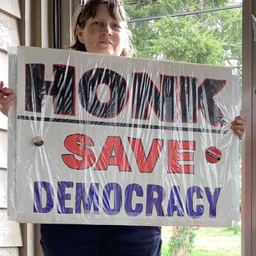 HONK
SAVE
DEMOCRACY